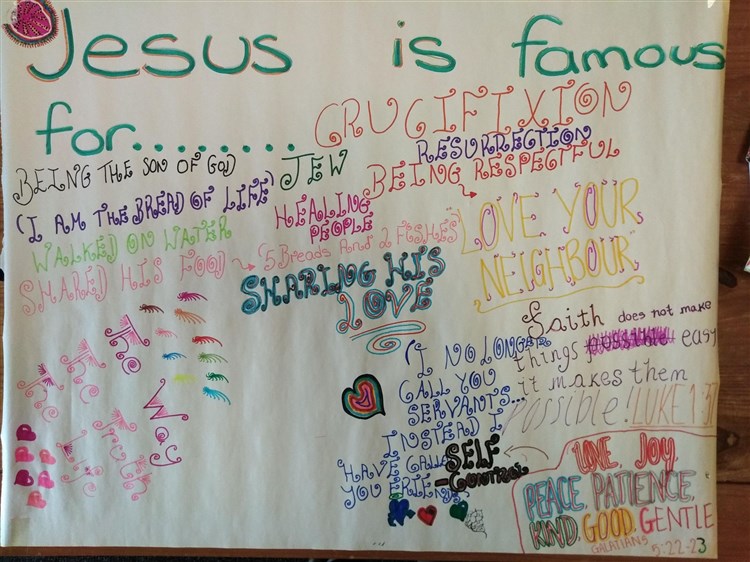 Jesus is famous
for.........
CRUCIFIXION
RESURRECTION
JEW
BEING RESPECTFUL
BEING THE SON OF GOD
(I AM THE BREAD OF LIFE)
HEALING
PEOPLE
LOVE YOUR
NEIGHBOUR
WALKED ON WATER
SHARED HIS FOOD → (5 Breads And 2 FISHES)
SHARING HIS
LOVE
The Way
The Truth
The Life
Faith does not make
things easy
it makes them
possible! LUKE 1:37
(I NO LONGER
CALL YOU
SERVANTS...
INSTEAD I
HAVE CALLED
YOU FRIENDS
SELF
-CONTROL
LOVE JOY
PEACE, PATIENCE
KIND, GOOD, GENTLE
GALATIANS 5:22-23